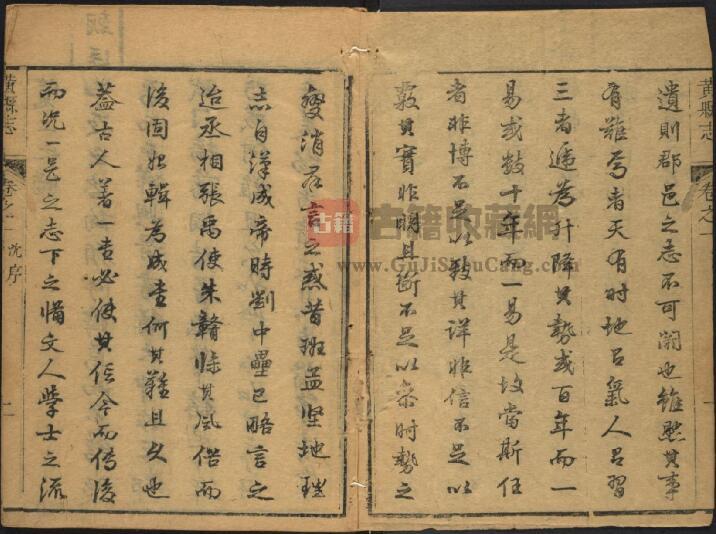 黄縣志
卷之一
遺則郡邑之志不可闕也雖然其事
有難焉者天有時地有氣人有習
三者遞為升降其勢或百年而一
易或數十年而一易是故當斯任
者非博不足以致其詳非信不足以
覈其實非明且斷不足以氣時勢之
變消群言之惑昔班孟堅地理
志自漢成帝時劉中壘已略言之
迨丞相張禹使朱贛條其風俗而
後固始輯為成書何其難且久也
蓋古人著一書必使其信今而傳後
而況一邑之志下之備文人學士之流
黄縣志
卷之一
沈序
古籍
古籍收藏網
www.GuJiShouCang.com